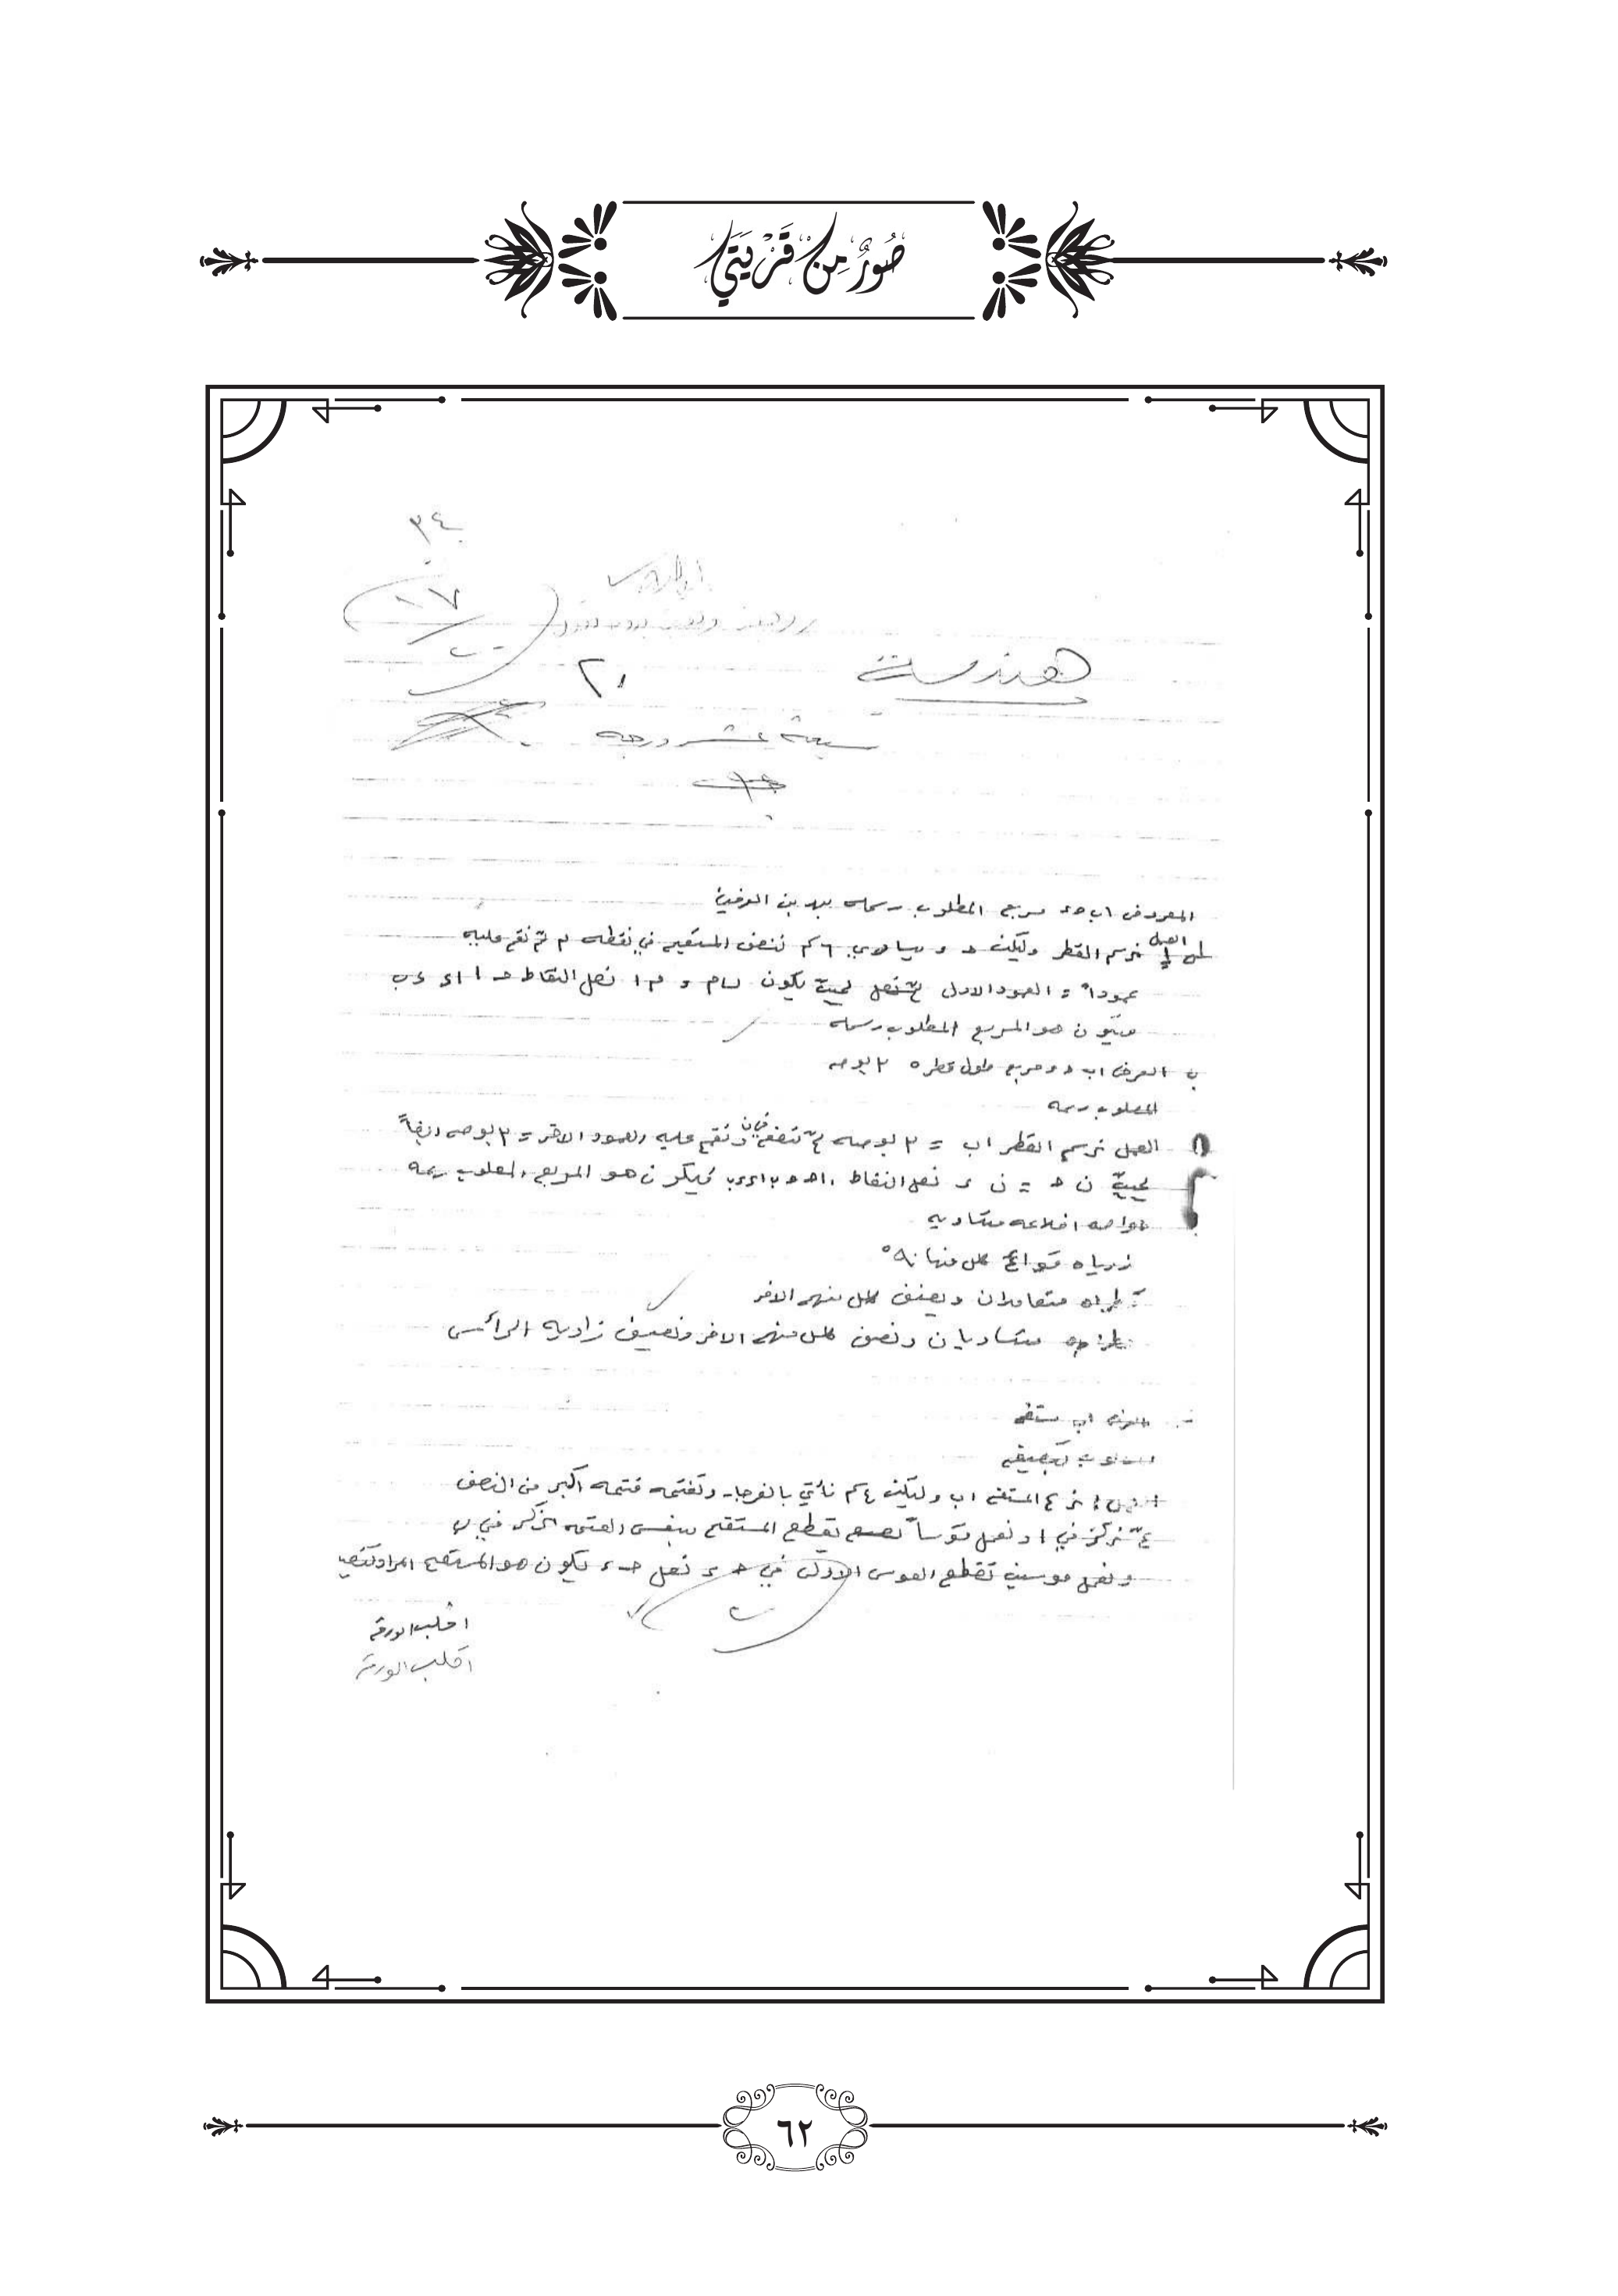 صُوَرٌ مِن قَرْيَتِي
٣٤
١٧
هندسة
٢٠
سبعة عشر درجه
المفروض ا ب حـ ء مربع المطلوب رسمه
العمل
نرسم القطر وليكن حـ ء ويساوي ٦ كم ننصف المستقيم في نقطه م ثم نقم عليه
عموداً = العمود الاول ثم نصل بحيث يكون م ا نصل النقاط حـ ا ا ء ء ب
فيكون هو المربع المطلوب رسمه
ب الفرض ا ب حـ ء مربع طول قطره ٣ بوصه
المطلوب رسمه
العمل نرسم القطر ا ب = ٣ بوصه ثم ننصفه في ن ونقم عليه العمود الاخر = ٣ بوصه ايضاً
بحيث ن حـ = ن ء نصل النقاط ا حـ حـ ب ا ء ء ب فيكون هو المربع المطلوب رسمه
خواصه اضلاعه متساويه
زواياه قوائم كل منها ٩٠°
قطراه متعامدان وينصف كل منهم الاخر
متساويان ونصف كل منهم الاخر وتنصيف زاويه الرأس
الفرض ا ب مستقيم
المطلوب تنصيفه
العمل نرسم المستقيم ا ب وليكن ٤ كم نأتي بالفرجار ونفتحه فتحه اكبر من النصف
ثم نركز في ا ونعمل قوساً يقطع المستقيم بنفس الفتحه نركز في ب
ونعمل قوسين تقطع القوس الاولى في حـ ء نصل حـ ء يكون هو المستقيم المراد تنصيفه
اقلب الورقة
اقلب الورقة
٦٢